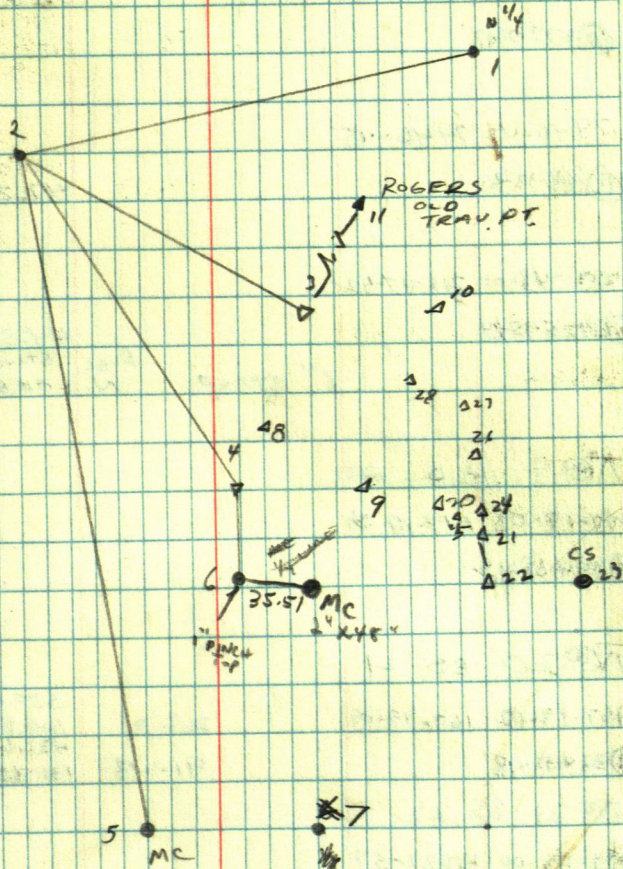 N 1/4
1
2
ROGERS
OLD
TRAV. PT.
11
3
10
28
27
26
8
4
9
20
24
21
22
CS
23
6
35.51
MC
1" X 48"
1" PINCH
TOP
7
5
MC